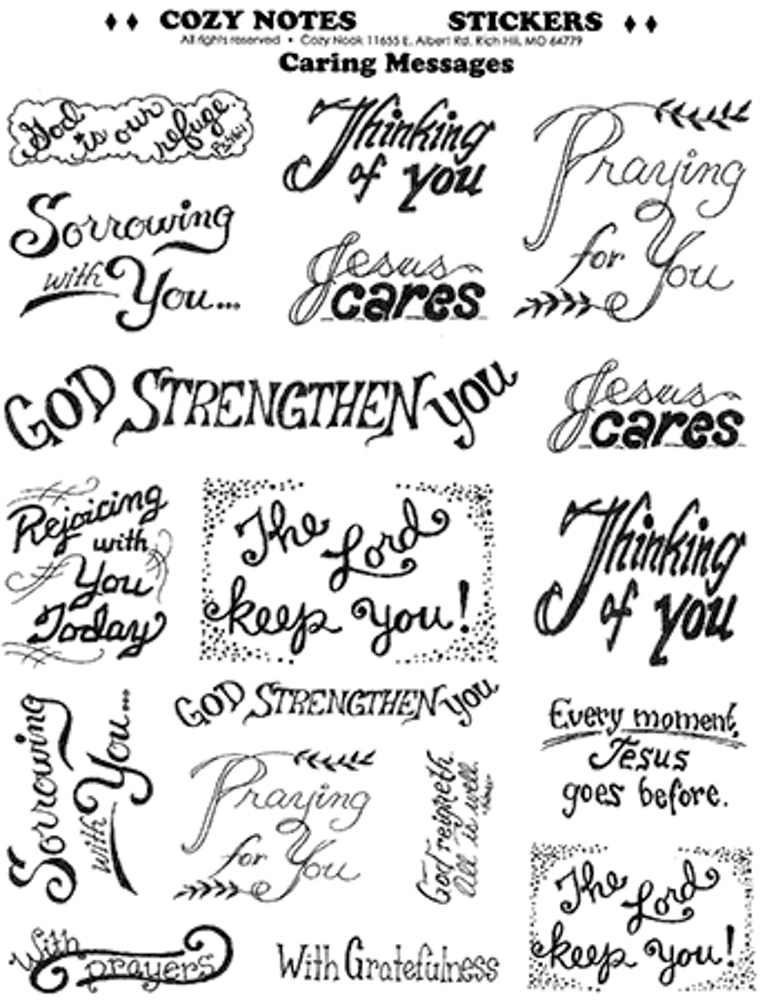 ♦ ♦ COZY NOTES STICKERS ♦ ♦
All rights reserved • Cozy Nook 11655 E. Albert Rd. Rich Hill, MO 64779
Caring Messages
God is our refuge.
Ps. 46:1
Thinking
of you
Praying
for You
Sorrowing
with You...
Jesus
cares
GOD STRENGTHEN you
Jesus
cares
Rejoicing
with
You
Today
The Lord
keep you!
Thinking
of you
Sorrowing
with You...
GOD STRENGTHEN you
Praying
for You
God reigneth.
All is well.
Every moment,
Jesus
goes before.
The Lord
keep you!
With
prayers
With Gratefulness